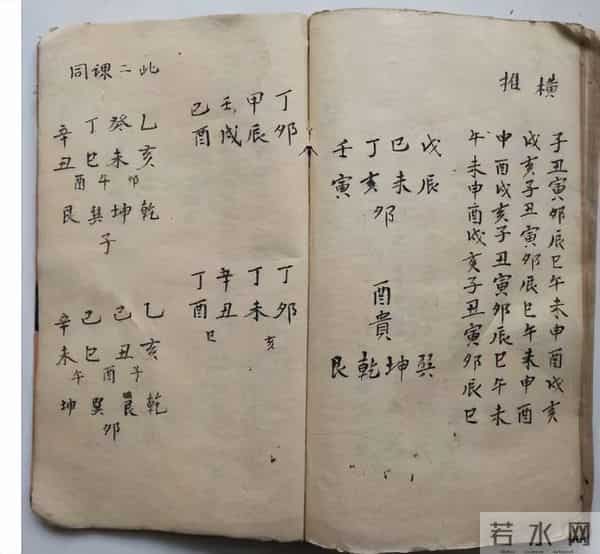 橫推
子丑寅卯辰巳午未申酉戌亥
戌亥子丑寅卯辰巳午未申酉
申酉戌亥子丑寅卯辰巳午未
午未申酉戌亥子丑寅卯辰巳
戊辰
己未
丁亥
壬寅
卯
酉貴
巽坤乾艮
丁卯
甲辰
壬戌
己酉
丁卯
丁未
辛丑
丁酉
亥
巳
此二課同
乙亥
癸未
丁巳
辛丑
卯午酉
乾坤巽艮
子
乙亥
己丑
己巳
辛未
子酉午
乾艮巽坤
卯
若水网